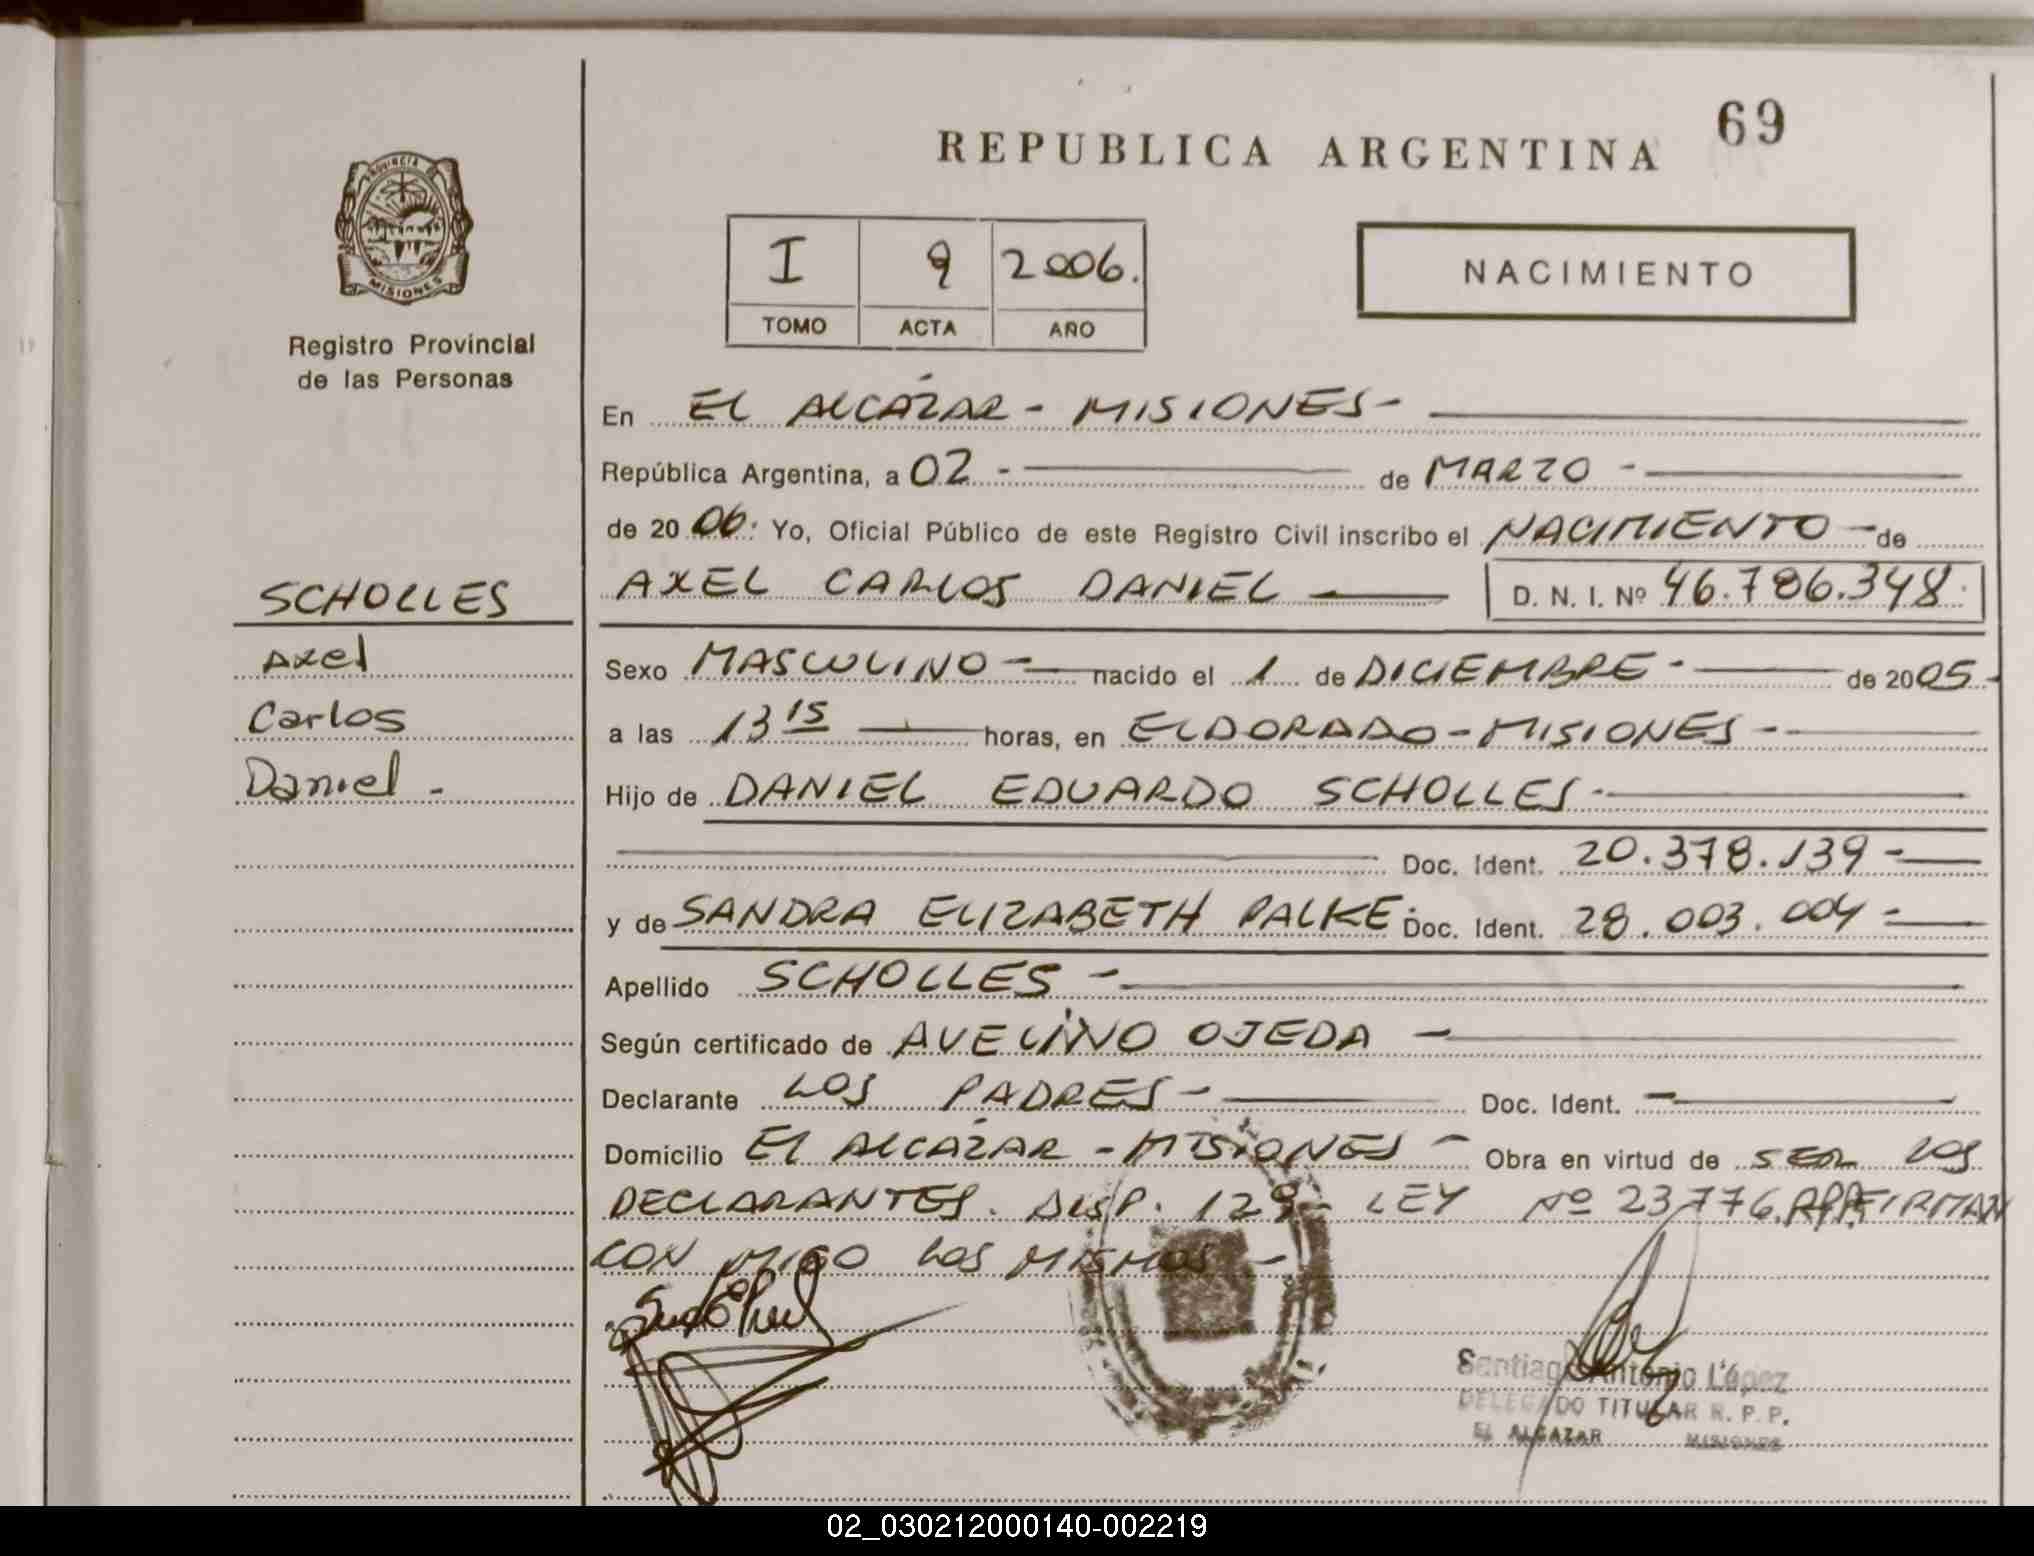 69
REPUBLICA ARGENTINA
PROVINCIA DE
MISIONES
Registro Provincial
de las Personas
I 9 2006.
TOMO ACTA AÑO
NACIMIENTO
En EL ALCÁZAR - MISIONES -
República Argentina, a 02 - de MARZO -
de 20 06. Yo, Oficial Público de este Registro Civil inscribo el NACIMIENTO - de
AXEL CARLOS DANIEL — D. N. I. Nº 46.786.348.
SCHOLLES
Axel
Carlos
Daniel -
Sexo MASCULINO - nacido el 1 de DICIEMBRE - de 2005 -
a las 13 15 horas, en ELDORADO - MISIONES -
Hijo de DANIEL EDUARDO SCHOLLES -
Doc. Ident. 20.378.139 -
y de SANDRA ELIZABETH PALKE. Doc. Ident. 28.003.004 -
Apellido SCHOLLES -
Según certificado de AVELINO OJEDA -
Declarante LOS PADRES - Doc. Ident. -
Domicilio El ALCÁZAR - MISIONES - Obra en virtud de SER LOS
DECLARANTES. DISP. 129 - LEY Nº 23776. FIRMAN
CON MIGO LOS MISMOS -
Santiago Antonio López
DELEGADO TITULAR R. P. P.
EL ALCAZAR MISIONES
02_030212000140-002219